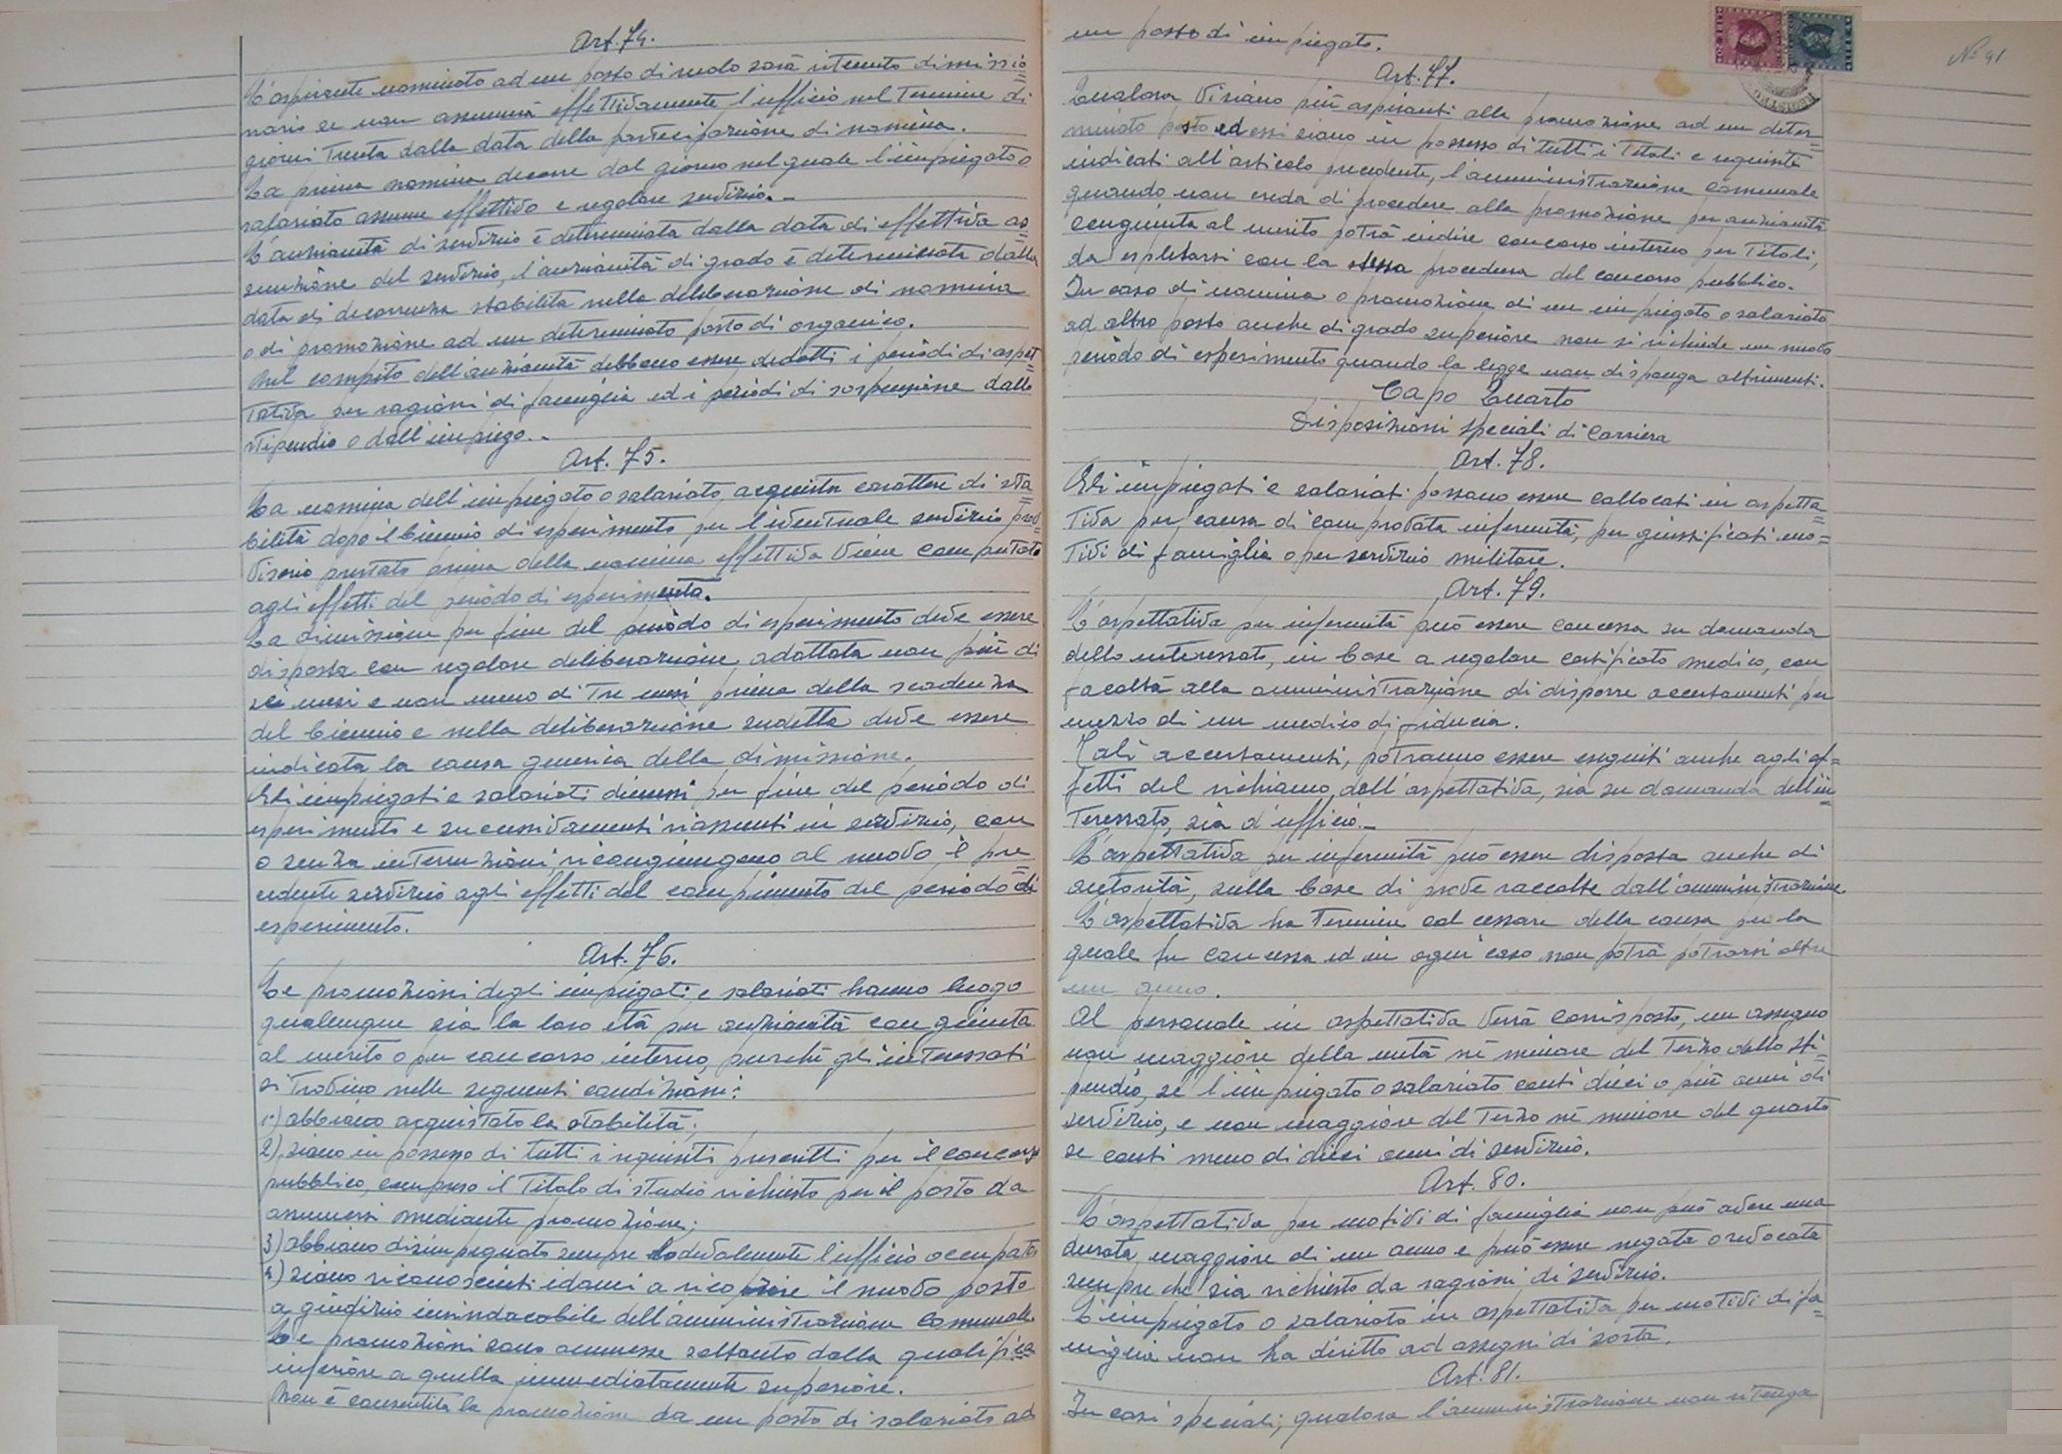 Art. 74.
L'aspirante nominato ad un posto di ruolo sarà ritenuto dimissio=
nario se non assumerà effettivamente l'ufficio nel termine di
giorni trenta dalla data della partecipazione di nomina.
La prima nomina decorre dal giorno nel quale l'impiegato o
salariato assume effettivo e regolare servizio.
L'anzianità di servizio è determinata dalla data di effettiva as=
sunzione del servizio, l'anzianità di grado è determinata dalla
data di decorrenza stabilita nella deliberazione di nomina
o di promozione ad un determinato posto di organico.
Nel computo dell'anzianità debbono essere dedotti i periodi di aspet=
tativa per ragioni di famiglia ed i periodi di sospensione dallo
stipendio o dall'impiego.
Art. 75.
La nomina dell'impiegato o salariato acquista carattere di sta=
bilità dopo il biennio di esperimento per l'eventuale servizio prov=
visorio prestato prima della nomina effettiva viene computato
agli effetti del periodo di esperimento.
La dimissione per fine del periodo di esperimento deve essere
disposta con regolare deliberazione adottata non più di
sei mesi e non meno di tre mesi prima della scadenza
del biennio e nella deliberazione sudetta deve essere
indicata la causa generica della dimissione.
Gli impiegati e salariati dimessi per fine del periodo di
esperimento e successivamenti riassunti in servizio, con
o senza interruzioni ricongiungono al nuovo il pre=
cedente servizio agli effetti del compimento del periodo di
esperimento.
Art. 76.
Le promozioni degli impiegati e salariati hanno luogo
qualunque sia la loro età per anzianità congiunta
al merito o per concorso interno, purchè gli interessati
si trovino nelle seguenti condizioni:
1°) abbiano acquistato la stabilità;
2) siano in possesso di tutti i requisiti prescritti per il concorso
pubblico, compreso il titolo di studio richiesto per il posto da
assumersi mediante promozione;
3) abbiano disimpegnato sempre lodevolmente l'ufficio occupato
4) siano riconosciuti idonei a ricoprire il nuovo posto
a giudizio insindacabile dell'amministrazione Comunale.
Le promozioni sono ammesse soltanto dalla qualifica
inferiore a quella immediatamente superiore.
Non è consentita la promozione da un posto di salariato ad
un posto di impiegato.
Art. 77.
Qualora vi siano più aspiranti alla promozione ad un deter=
minato posto ed essi siano in possesso di tutti i titoli e requisiti
indicati all'articolo precedente, l'amministrazione comunale
quando non creda di procedere alla promozione per anzianità
congiunta al merito potrà indire concorso interno per titoli,
da espletarsi con la stessa procedura del concorso pubblico.
In caso di nomina o promozione di un impiegato o salariato
ad altro posto anche di grado superiore non si richiede un nuovo
periodo di esperimento quando la legge non disponga altrimenti.
Capo Quarto
Disposizioni speciali di carriera
Art. 78.
Gli impiegati e salariati possono essere collocati in aspetta=
tiva per causa di comprovata infermità, per giustificati mo=
tivi di famiglia o per servizio militare.
Art. 79.
L'aspettativa per infermità può essere concessa su domanda
dello interessato, in base a regolare certificato medico, con
facoltà alla amministrazione di disporre accertamenti per
mezzo di un medico di fiducia.
Tali accertamenti, potranno essere eseguiti anche agli ef=
fetti del richiamo dall'aspettativa, sia su domanda dell'in=
teressato, sia d'ufficio.
L'aspettativa per infermità può essere disposta anche di
autorità, sulla base di prove raccolte dall'amministrazione.
L'aspettativa ha termine col cessare della causa per la
quale fu concessa ed in ogni caso non potrà potrarsi oltre
un anno.
Al personale in aspettativa verrà corrisposto, un assegno
non maggiore della metà nè minore del terzo dello sti=
pendio, se l'impiegato o salariato conti dieci o più anni di
servizio, e non maggiore del terzo nè minore del quarto
se conti meno di dieci anni di servizio.
Art. 80.
L'aspettativa per motivi di famiglia non può avere una
durata maggiore di un anno e può essere negata o revocata
sempre che sia richiesto da ragioni di servizio.
L'impiegato o salariato in aspettativa per motivi di fa=
miglia non ha diritto ad assegni di sorta.
Art. 81.
In casi speciali, qualora l'amministrazione non ritenga
N° 91